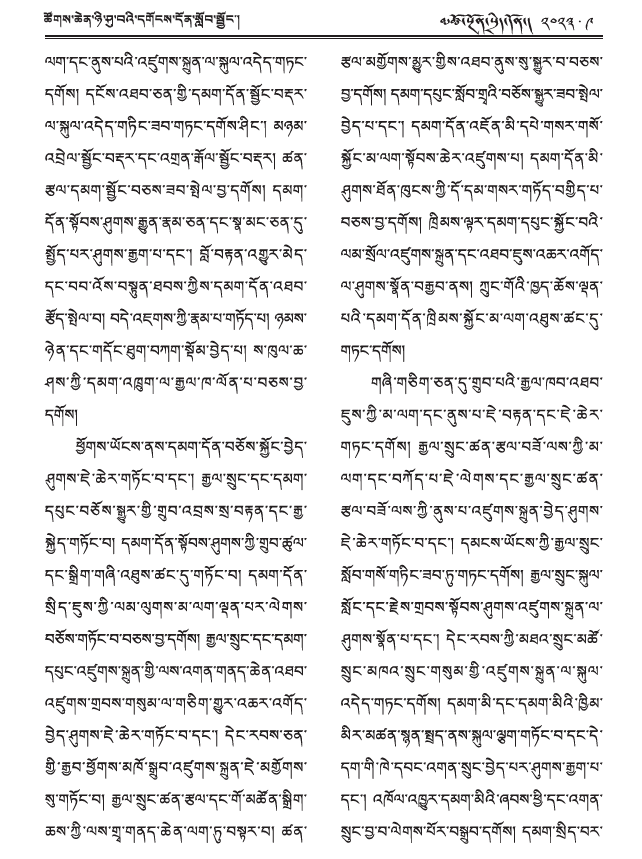 ཚོགས་ཆེན་ཉི་ཤུ་བའི་དགོངས་དོན་སློབ་སྦྱོང་།
༢༠༢༣.༩
ལག་དང་ནུས་པའི་འཛུགས་སྐྲུན་ལ་སྐུལ་འདེད་གཏང་
དགོས། དངོས་འཐབ་ཅན་གྱི་དམག་དོན་སྦྱོང་བརྡར་
ལ་སྐུལ་འདེད་གཏིང་ཟབ་གཏང་དགོས་ཤིང་། མཉམ་
འབྲེལ་སྦྱོང་བརྡར་དང་འགྲན་རྒོལ་སྦྱོང་བརྡར། ཚན་
རྩལ་དམག་སྦྱོང་བཅས་ཟབ་སྤེལ་བྱ་དགོས། དམག་
དོན་སྟོབས་ཤུགས་རྒྱུན་རྣམ་ཅན་དང་སྣ་མང་ཅན་དུ་
སྤྱོད་པར་ཤུགས་རྒྱག་པ་དང་། བློ་བརྟན་འགྱུར་མེད་
དང་བབ་འོས་བསྟུན་ཐབས་ཀྱིས་དམག་དོན་འཐབ་
རྩོད་སྤེལ་བ། བདེ་འཇགས་ཀྱི་རྣམ་པ་གཏོད་པ། ཉམས་
ཉེན་དང་གདོང་ཐུག་བཀག་སྡོམ་བྱེད་པ། ས་ཁུལ་ཆ་
ཤས་ཀྱི་དམག་འཁྲུག་ལ་རྒྱལ་ཁ་ལོན་པ་བཅས་བྱ་
དགོས།
ཕྱོགས་ཡོངས་ནས་དམག་དོན་བཅོས་སྐྱོང་བྱེད་
ཤུགས་ཇེ་ཆེར་གཏོང་བ་དང་། རྒྱལ་སྲུང་དང་དམག་
དཔུང་བཅོས་སྒྱུར་གྱི་གྲུབ་འབྲས་སྲ་བརྟན་དང་རྒྱ་
སྐྱེད་གཏོང་བ། དམག་དོན་སྟོབས་ཤུགས་ཀྱི་གྲུབ་ཚུལ་
དང་སྒྲིག་གཞི་འཐུས་ཚང་དུ་གཏོང་བ། དམག་དོན་
སྲིད་ཇུས་ཀྱི་ལམ་ལུགས་མ་ལག་ལྡན་པར་ལེགས་
བཅོས་གཏོང་བ་བཅས་བྱ་དགོས། རྒྱལ་སྲུང་དང་དམག་
དཔུང་འཛུགས་སྐྲུན་གྱི་ལས་འགན་གནད་ཆེན་འཐབ་
འཛུགས་གྲབས་གསུམ་ལ་གཅིག་གྱུར་འཆར་འགོད་
བྱེད་ཤུགས་ཇེ་ཆེར་གཏོང་བ་དང་། དེང་རབས་ཅན་
གྱི་རྒྱབ་ཕྱོགས་མཁོ་སྒྲུབ་འཛུགས་སྐྲུན་ཇེ་མགྱོགས་
སུ་གཏོང་བ། རྒྱལ་སྲུང་ཚན་རྩལ་དང་གོ་མཚོན་སྒྲིག་
ཆས་ཀྱི་ལས་གྲྭ་གནད་ཆེན་ལག་ཏུ་བསྟར་བ། ཚན་
རྩལ་མགྱོགས་མྱུར་གྱིས་འཐབ་ནུས་སུ་སྒྱུར་བ་བཅས་
བྱ་དགོས། དམག་དཔུང་སློབ་གྲྭའི་བཅོས་སྒྱུར་ཟབ་སྤེལ་
བྱེད་པ་དང་། དམག་དོན་འཛོན་མི་དཔེ་གསར་གསོ་
སྐྱོང་མ་ལག་སྟོབས་ཆེར་འཛུགས་པ། དམག་དོན་མི་
ཤུགས་ཐོན་ཁུངས་ཀྱི་དོ་དམ་གསར་གཏོད་བགྱིད་པ་
བཅས་བྱ་དགོས། ཁྲིམས་ལྟར་དམག་དཔུང་སྐྱོང་བའི་
ལམ་སྲོལ་འཛུགས་སྐྲུན་དང་འཐབ་ཇུས་འཆར་འགོད་
ལ་ཤུགས་སྣོན་བརྒྱབ་ནས། ཀྲུང་གོའི་ཁྱད་ཆོས་ལྡན་
པའི་དམག་དོན་ཁྲིམས་སྐྱོང་མ་ལག་འཐུས་ཚང་དུ་
གཏང་དགོས།
གཞི་གཅིག་ཅན་དུ་གྲུབ་པའི་རྒྱལ་ཁབ་འཐབ་
ཇུས་ཀྱི་མ་ལག་དང་ནུས་པ་ཇེ་བརྟན་དང་ཇེ་ཆེར་
གཏང་དགོས། རྒྱལ་སྲུང་ཚན་རྩལ་བཟོ་ལས་ཀྱི་མ་
ལག་དང་བཀོད་པ་ཇེ་ལེགས་དང་རྒྱལ་སྲུང་ཚན་
རྩལ་བཟོ་ལས་ཀྱི་ནུས་པ་འཛུགས་སྐྲུན་བྱེད་ཤུགས་
ཇེ་ཆེར་གཏོང་བ་དང་། དམངས་ཡོངས་ཀྱི་རྒྱལ་སྲུང་
སློབ་གསོ་གཏིང་ཟབ་ཏུ་གཏང་དགོས། རྒྱལ་སྲུང་སྐུལ་
སློང་དང་རྗེས་གྲབས་སྟོབས་ཤུགས་འཛུགས་སྐྲུན་ལ་
ཤུགས་སྣོན་པ་དང་། དེང་རབས་ཀྱི་མཐའ་སྲུང་མཚོ་
སྲུང་མཁའ་སྲུང་གསུམ་གྱི་འཛུགས་སྐྲུན་ལ་སྐུལ་
འདེད་གཏང་དགོས། དམག་མི་དང་དམག་མིའི་ཁྱིམ་
མིར་མཚན་སྙན་སྤྲད་ནས་སྐུལ་ལྕག་གཏོང་བ་དང་དེ་
དག་གི་ཁེ་དབང་འགན་སྲུང་བྱེད་པར་ཤུགས་རྒྱག་པ་
དང་། འཁོལ་འཁྱུར་དམག་མིའི་ཞབས་ཕྱི་དང་འགན་
སྲུང་བྱ་བ་ལེགས་པོར་བསྒྲུབ་དགོས། དམག་སྲིད་བར་